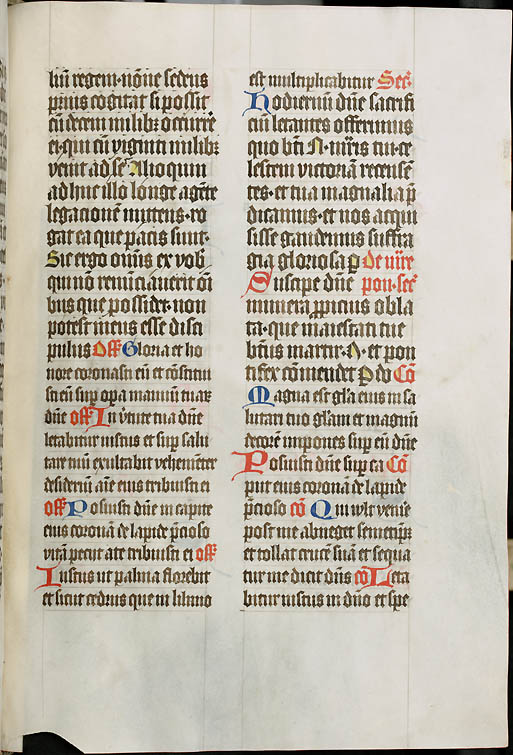 liū regem·nōne sedens
prius cogitat si possit
cū decem milibꝫ occurrē̄
ei·qui cū viginti milibꝫ
venit ad se Alioquin
adhuc illo longe agēte
legacionē mittens·ro
gat ea que pacis sunt·
Sic ergo omīs ex vob̄
qui nō renūciauerit oī
bus que possidet·non
potest meus esse disci
pulus Off̄ Gloria et ho
nore coronasti eū et cōstitui
sti eū sup̄ op̄a manuū tuaꝝ
dn̄e off̄ In v̓tute tua dn̄e
letabitur iustus et sup̄ salu
tare tuū exultabit vehemēter
desideriū aīe eius tribuisti ei
off̄ Posuisti dn̄e in capite
eius coronā de lapide p̄cioso
vitā peciit a te tribuisti ei off̄
Iustus ut palma florebit
et sicut cedrus que in libano
est multiplicabitur Sec̄·
Hodiernū dn̄e sacrifi
ciū letantes offerimus
quo bt̄i N· m̄ris tui·ce
lestem victoriā recensē
tes·et tua magnalia p̄
dicamus·et nos acqui
sisse gaudemus suffra
gia gloriosa p de m̄re
Suscipe dn̄e pon·sec̄
munera p̄picius obla
ta·que maiestati tue
bt̄us martir·N·et pon
tifex cōmendet p do Cō
Magna est gl̄a eius in sa
lutari tuo gl̄am et magnū
decorē impones sup̄ eū dn̄e
Posuisti dn̄e sup̄ ca Cō
put eius coronā de lapide
p̄cioso cō Qui vult venire
post me abneget semetip̄m
et tollat crucē suā et sequa
tur me dicit dn̄s cō Leta
bitur iustus in dn̄o et spe